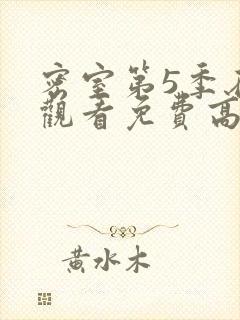 密室第5季在
觀看免費高
黃水木